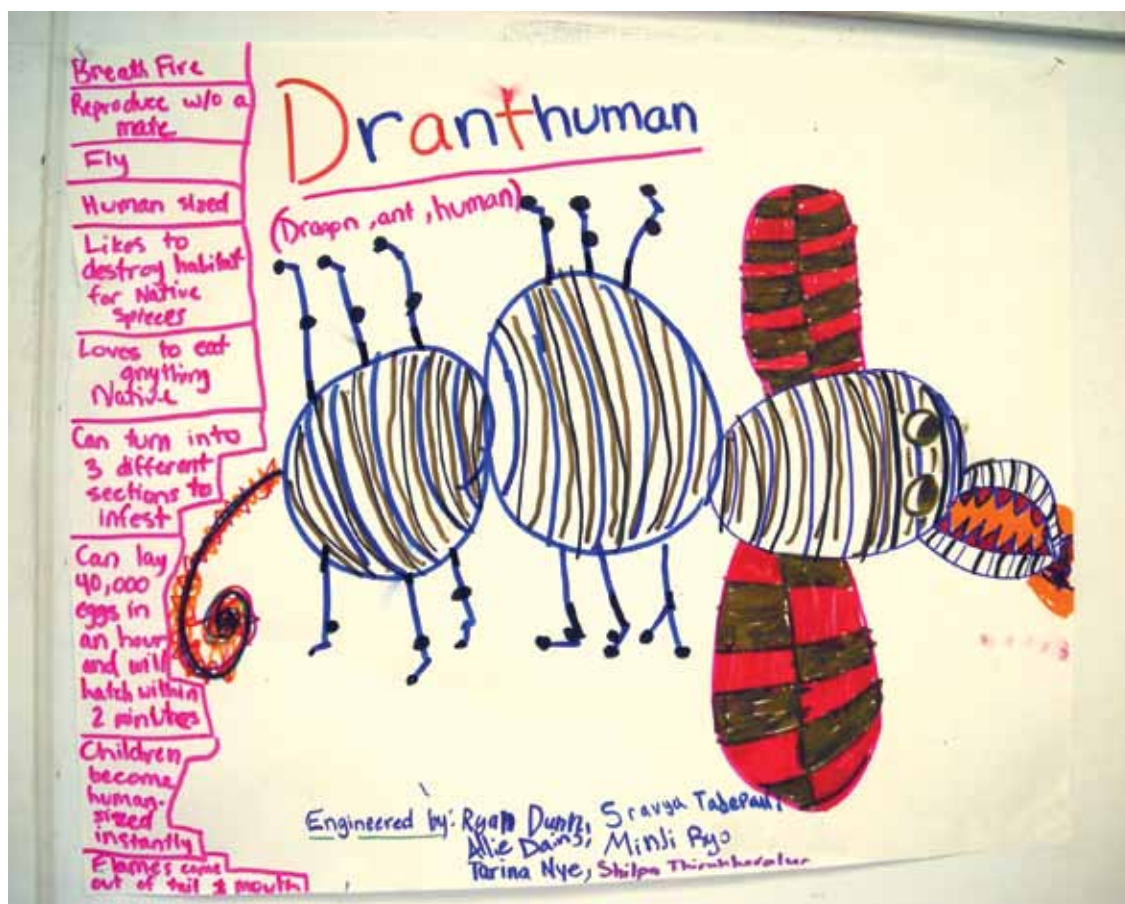 Breath Fire
Reproduce w/o a
mate
Fly
Human sized
Likes to
destroy habitat
for Native
spieces
Loves to eat
anything
Native
Can turn into
3 different
sections to
infest
Can lay
40,000
eggs in
an hour
and will
hatch within
2 minutes
Children
become
human-
sized
instantly
Flames come
out of tail & mouth
Dranthuman
(Dragon, ant, human)
Engineered by: Ryan Dunn, Sravya
Allie Dains, Minji Ryo
Tarina Nye, Shilpa